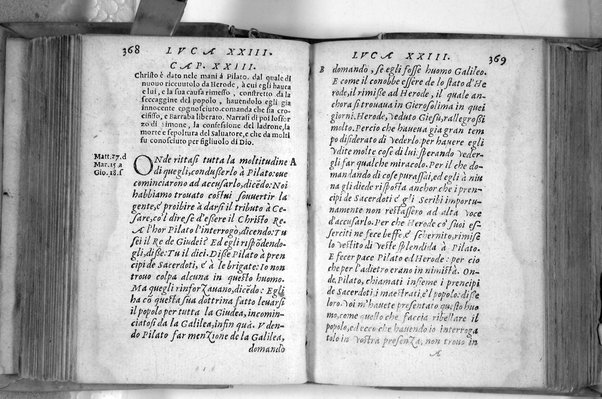 368 LVCA XXIII.
CAP. XXIII.
Christo è dato nelle mani à Pilato. dal quale di
nuouo riceuutolo da Herode, à cui egli hauea
e lui, e la sua causa rimesso, constretto da la
seccaggine del popolo, hauendolo egli gia
innocente cognosciuto. comanda che sia cro-
cifisso, e Barraba liberato. Narrasi di poi lo
di Simone, la confessione del ladrone, la
morte e sepoltura del Saluatore, e che da molti
fu conosciuto per figliuolo di Dio.
Matt. 27. d
Mar. 15 a
Gio. 18. f
ONDE rittasi tutta la moltitudine A
di quegli, condusserlo à Pilato: oue
cominciarono ad accusarlo, dicẽdo: Noi
habbiamo trouato costui souuertir la
gente, è proibire à darsi il tributo à Ce-
sare, col dire se d'essere il Christo Re.
A l'hor Pilato l'interrogò, dicendo: Tu
sei il Re de Giudei? Ed egli rispõdendo-
gli, disse: Tu il dici. Disse Pilato à pren
cipi de Sacerdoti, è à le brigate: Io non
trouo colpa alcuna in questo huomo.
Ma quegli rinforzauano, dicẽdo: Egli
ha cõ questa sua dottrina fatto leuarsi
il popolo per tutta la Giudea, incomin-
ciatosi da la Galilea, infin quà. Vden-
do Pilato far menzione de la Galilea,
domandò
LVCA XXIII. 369
B domandò, se egli fosse huomo Galileo.
E come il conobbe essere de lo stato d'He
rode, il rimise ad Herode, il quale an-
chora si trouaua in Gierosolima in quei
giorni. Herode, veduto Giesù, rallegrossi
molto. Percio che haueua gia gran tem
po disiderato di vederlo. per hauere vdite
molte cose di lui: sperando veder-
gli far qualche miracolo. Per il che do
mandando di cose purassai, ed egli à niu
na gli diede risposta anchor che i pren-
cipi de Sacerdoti è gli Scribi importu-
namente non restassero ad alta voce
d'accusarlo. Per che Herode cõ suoi es-
serciti ne fece beffe, è schernito, rimise
lo vestito di veste splendida à Pilato.
E fecer pace Pilato ed Herode: per cio
che per l'adietro erano in nimistà. On-
de, Pilato, chiamati insieme i prencipi
de Sacerdoti, i maestrati, è l popolo: disse
loro. Voi m'hauete presentato questo huo
mo, come quello che faccia ribellare il
popolo, ed ecco che hauendo io interroga
tolo in vostra presenza, non trouo in
A